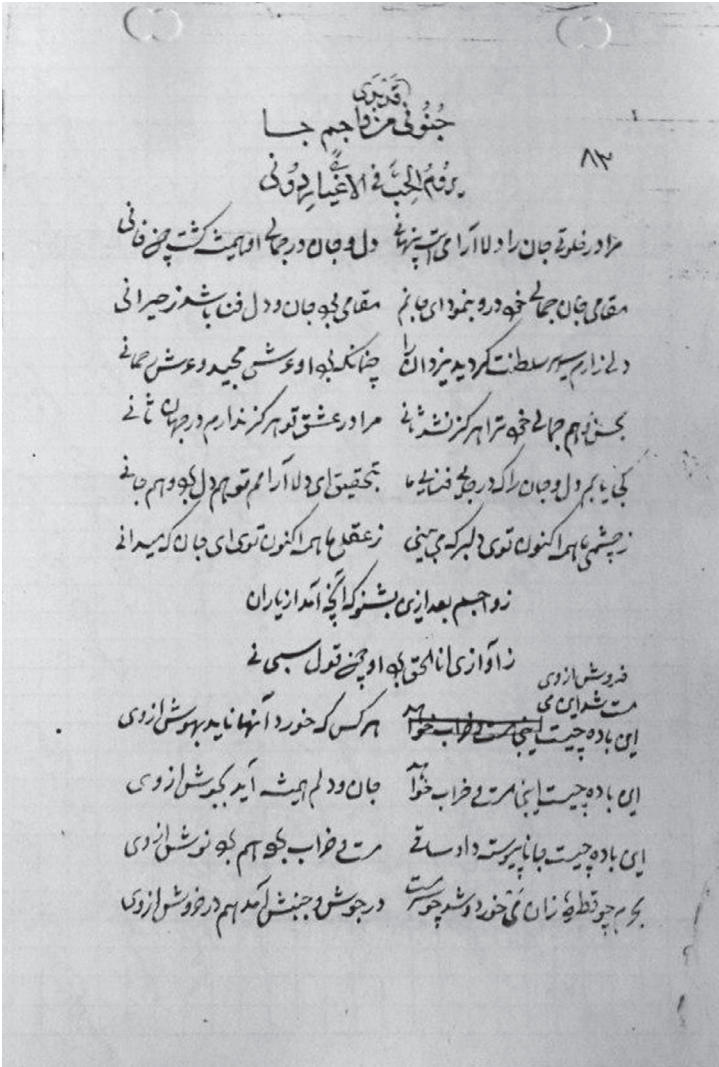 قدیری
جُنُونی من واجم جسا
۸۳
یرومُ الحِبَّ فی الاغیار دُونی
مرا در خلوتی جان را دلا آرای است پنهانی دل و جان در جمالی او همیشه گشت چون فانی
مقامی جان جمالی خود رو بنمود ای جانم مقامی بود جان و دل فنا باشد ز حیرانی
دلی زارم سلطنت گردید یزدان را چنانکه بود او عرشی مجید و عرش رحمانی
بحسن و هم جمالی خود ترا هرگز نشد ثانی مرا در عشق تو هرگز ندارم در جهان ثانی
کجا یابم دل و جان را که در جای فنایی ما بتحقیق ای دلا آرامم تو هم دل بود و هم جانی
ز چشمی ما همه اکنون توی دلبر که می بینی ز عقلی ما همه اکنون توی ای جان که میدانی
ز واجم بعد ازین بشنو که آنچه آمد از یاران
ز آوازی انا الحق بود او چون قول سبحانی
فروش از وی
مست شد این می
این باده چیست هر کس که خورد آنها ناید بهوش از وی
این باده چیست اینجا مست و خراب خواند جان و دلم همیشه آید بجوش از وی
این باده چیست جانا پیوسته داد ساقی مست و خراب بود هم بود نوش از وی
چو قطرهٔ زان می خورد و شد چو مست در جوش و جنبش آمد هم در خروش از وی